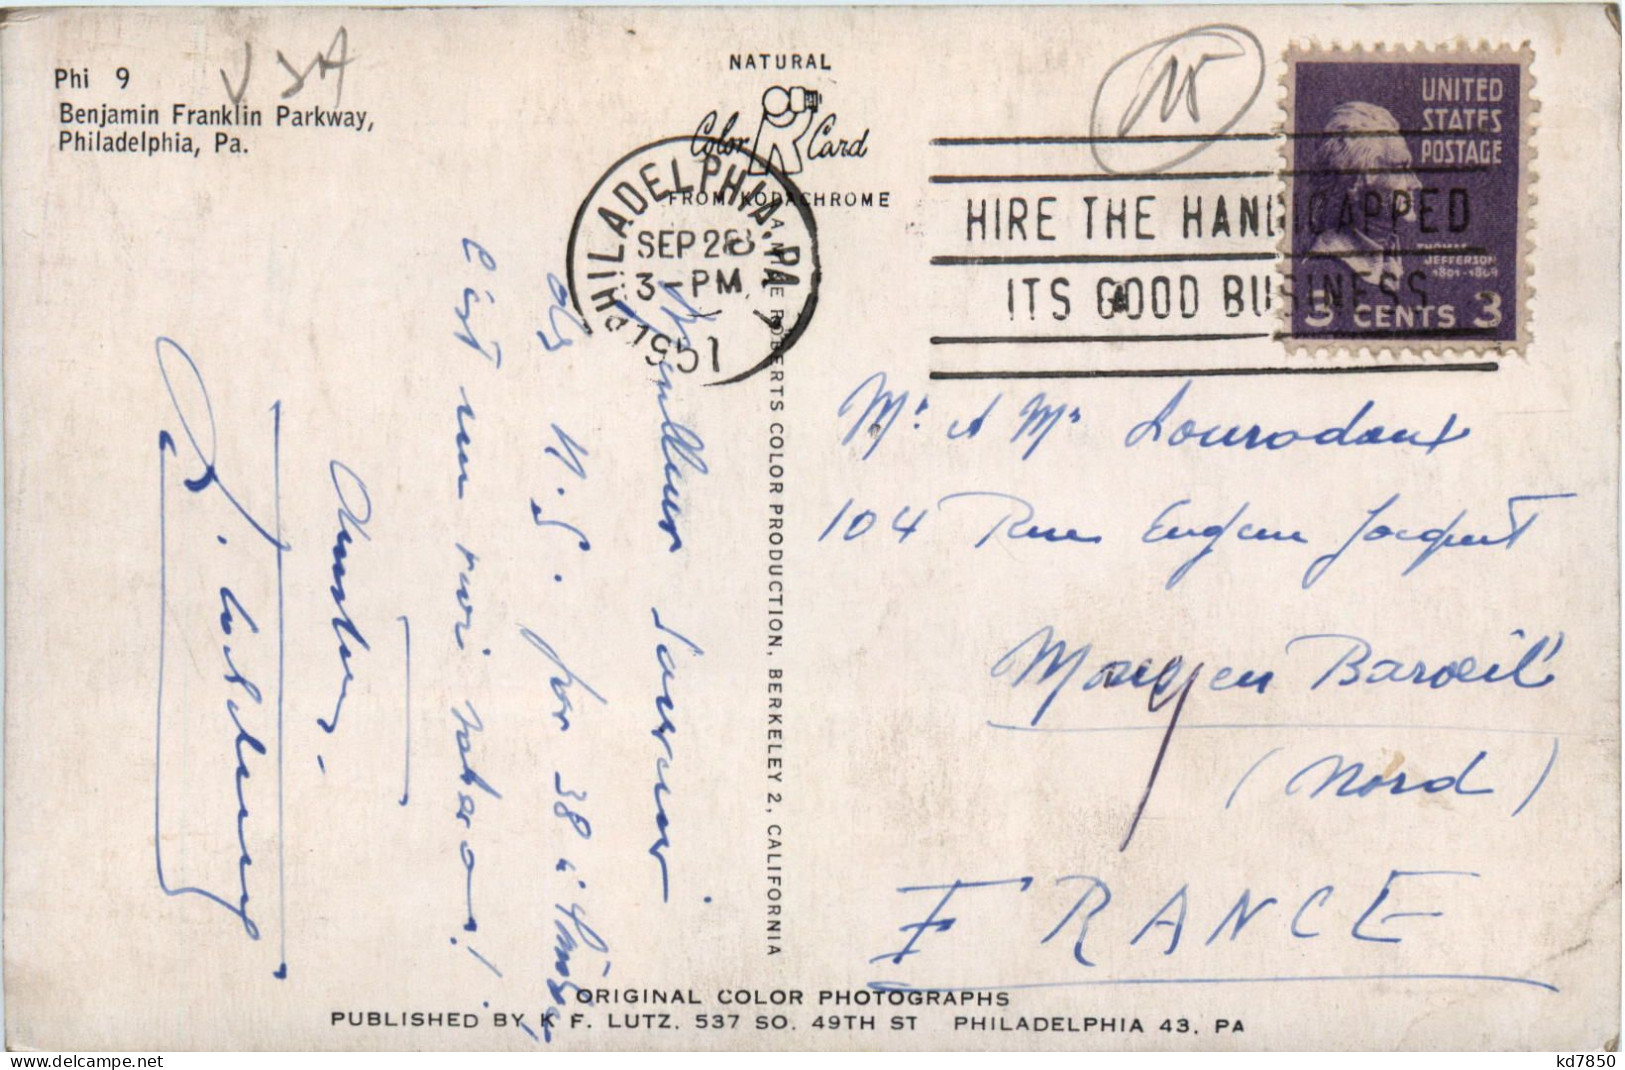 Phi 9
Benjamin Franklin Parkway,
Philadelphia, Pa.
USA
NATURAL
Color Card
FROM KODACHROME
PHILADELPHIA, PA.
SEP 28
3 - PM
1951
HIRE THE HANDICAPPED
ITS GOOD BUSINESS
UNITED
STATES
POSTAGE
THOMAS
JEFFERSON
1801-1809
3 CENTS 3
A MIKE ROBERTS COLOR PRODUCTION, BERKELEY 2, CALIFORNIA
Meilleur Souvenir
des U.S. par 38 à l'ombre
c'est un vrai sahara!
Mr. et Me
104 Rue Eugène Jacquet
Baroeil
(Nord)
FRANCE
ORIGINAL COLOR PHOTOGRAPHS
PUBLISHED BY K. F. LUTZ, 537 SO. 49TH ST PHILADELPHIA 43, PA
kd7850